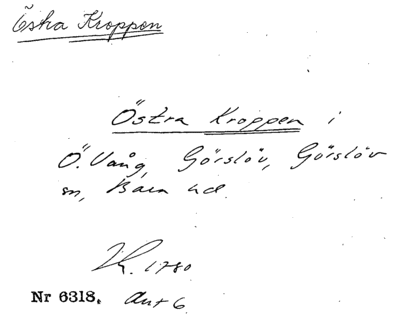 Östra Kroppen
Östra Kroppen i
Ö. Vång, Görslöv, Görslöv
sn, Bara hd.
1780
Nr 6318. Akt 6